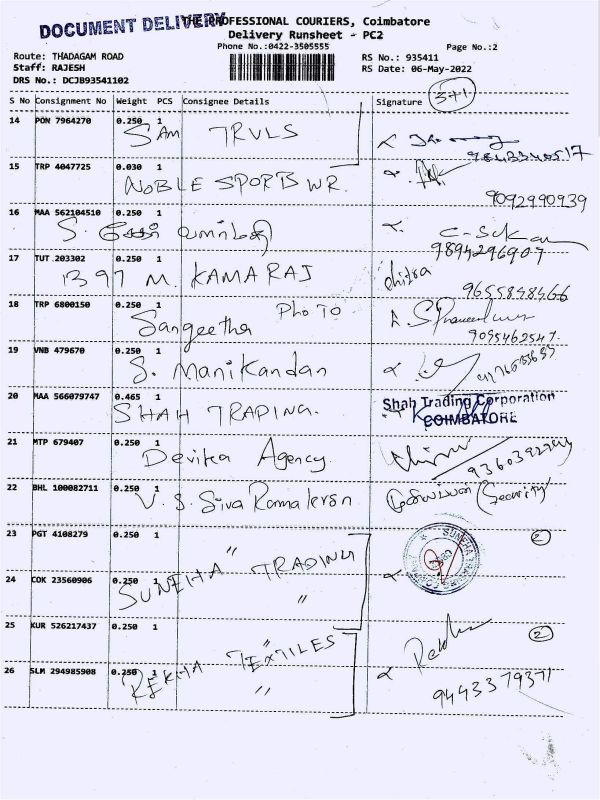 DOCUMENT DELIVERY
THE PROFESSIONAL COURIERS, Coimbatore
Delivery Runsheet - PC2
Phone No.:0422-3505555
Page No.:2
Route: THADAGAM ROAD
RS No.: 935411
Staff: RAJESH
RS Date: 06-May-2022
DRS No.: DCJB93541102
S No Consignment No Weight PCS Consignee Details Signature 3+1
14 PON 7964270 0.250 1
SAM TRVLS
15 TRP 4047725 0.030 1
NOBLE SPORTS WR.
9092990939
16 MAA 562104510 0.250 1
S.
9894296907
17 TUT 203302 0.250 1
1397 M. KAMARAJ chitra
9655848466
18 TRP 6800150 0.250 1
Sangeetha PhoTo
9095462547
19 VNB 479670 0.250 1
S. Manikandan
20 MAA 566079747 0.465 1
SHAH TRADING.
Shah Trading Corporation
COIMBATORE
21 MTP 679407 0.250 1
Devika Agency
22 BHL 100082711 0.250 1
V. S. Siva (Security)
23 PGT 4108279 0.250 1 2
" SUNEHA TRADING
24 COK 23560906 0.250 1
"
25 KUR 526217437 0.250 1 2
" REKHA TEXTILES Rekha
26 SLM 294985908 0.250 1
"
9443379371